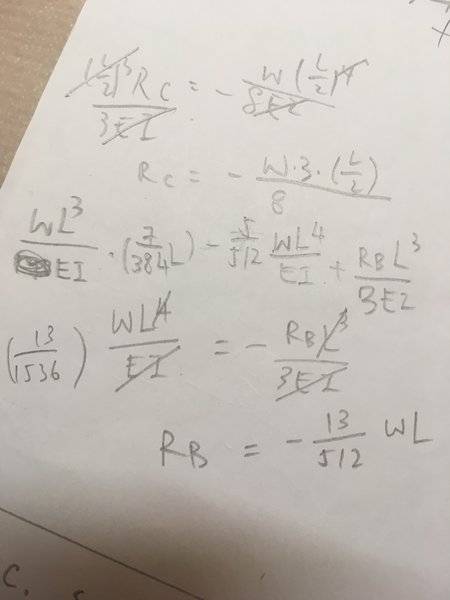 (L/2)^3 R_C / 3EI = - W (L/2)^4 / 8EI
R_C = - W·3·(L/2) / 8
WL^3 / EI · (7/384 L) - 5/512 WL^4/EI + R_B L^3 / 3EI
(13/1536) WL^4 / EI = - R_B L^3 / 3EI
R_B = - 13/512 WL
C.